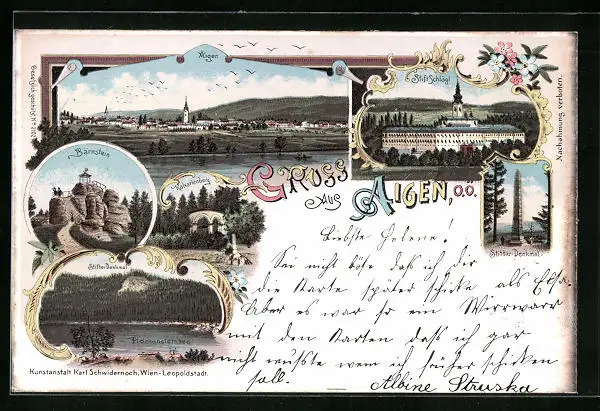 Aigen
Stift Schlägl
Gesetzlich geschützt No 2102
Nachahmung verboten.
Bärnstein
Kalvarienberg
Gruss
aus
Aigen, O.Ö.
Stifter-Denkmal
Stifter-Denkmal
Plöckensteinsee
Liebste Helene!
Sei nicht böse daß ich dir
die Karte später schicke als Elsa.
Aber es war so ein Wirrwarr
mit den Karten daß ich gar
nicht wußte wem ich früher schicken
soll.
Albine Struska
Kunstanstalt Karl Schwidernoch, Wien-Leopoldstadt.